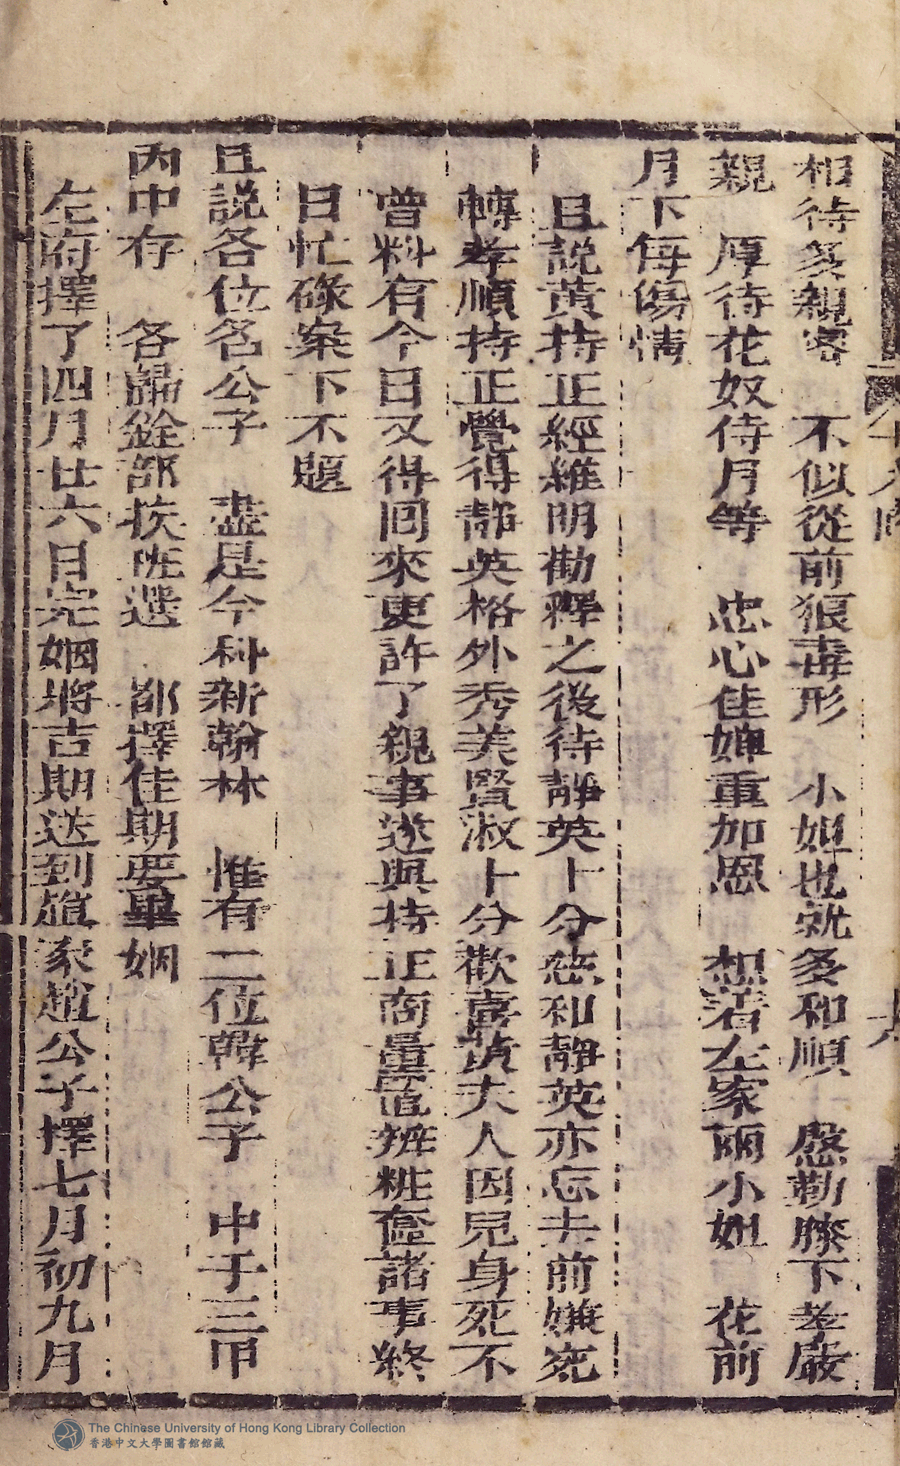 相待多親密　不似從前狠毒形　小姐也就多和順　慇勤膝下孝嚴
親　厚待花奴侍月等　忠心佳婢重加恩　想着左家兩小姐　花前
月下每傷情
且説黃持正經維明勸釋之後待靜英十分慈和靜英亦忘去前嫌宛
轉孝順持正覺得靜英格外秀美賢淑十分歡喜黃夫人因兒身死不
曾料有今日又得回來更許了親事遂與持正商量置辦粧奩諸事終
日忙碌案下不題
且説各位名公子　盡是今科新翰林　惟有二位韓公子　中于三甲
丙中存　各歸銓部挨班選　都擇佳期要畢姻
左府擇了四月廿六日完姻將吉期送到趙家趙公子擇七月初九月
十八
The Chinese University of Hong Kong Library Collection
香港中文大學圖書館館藏